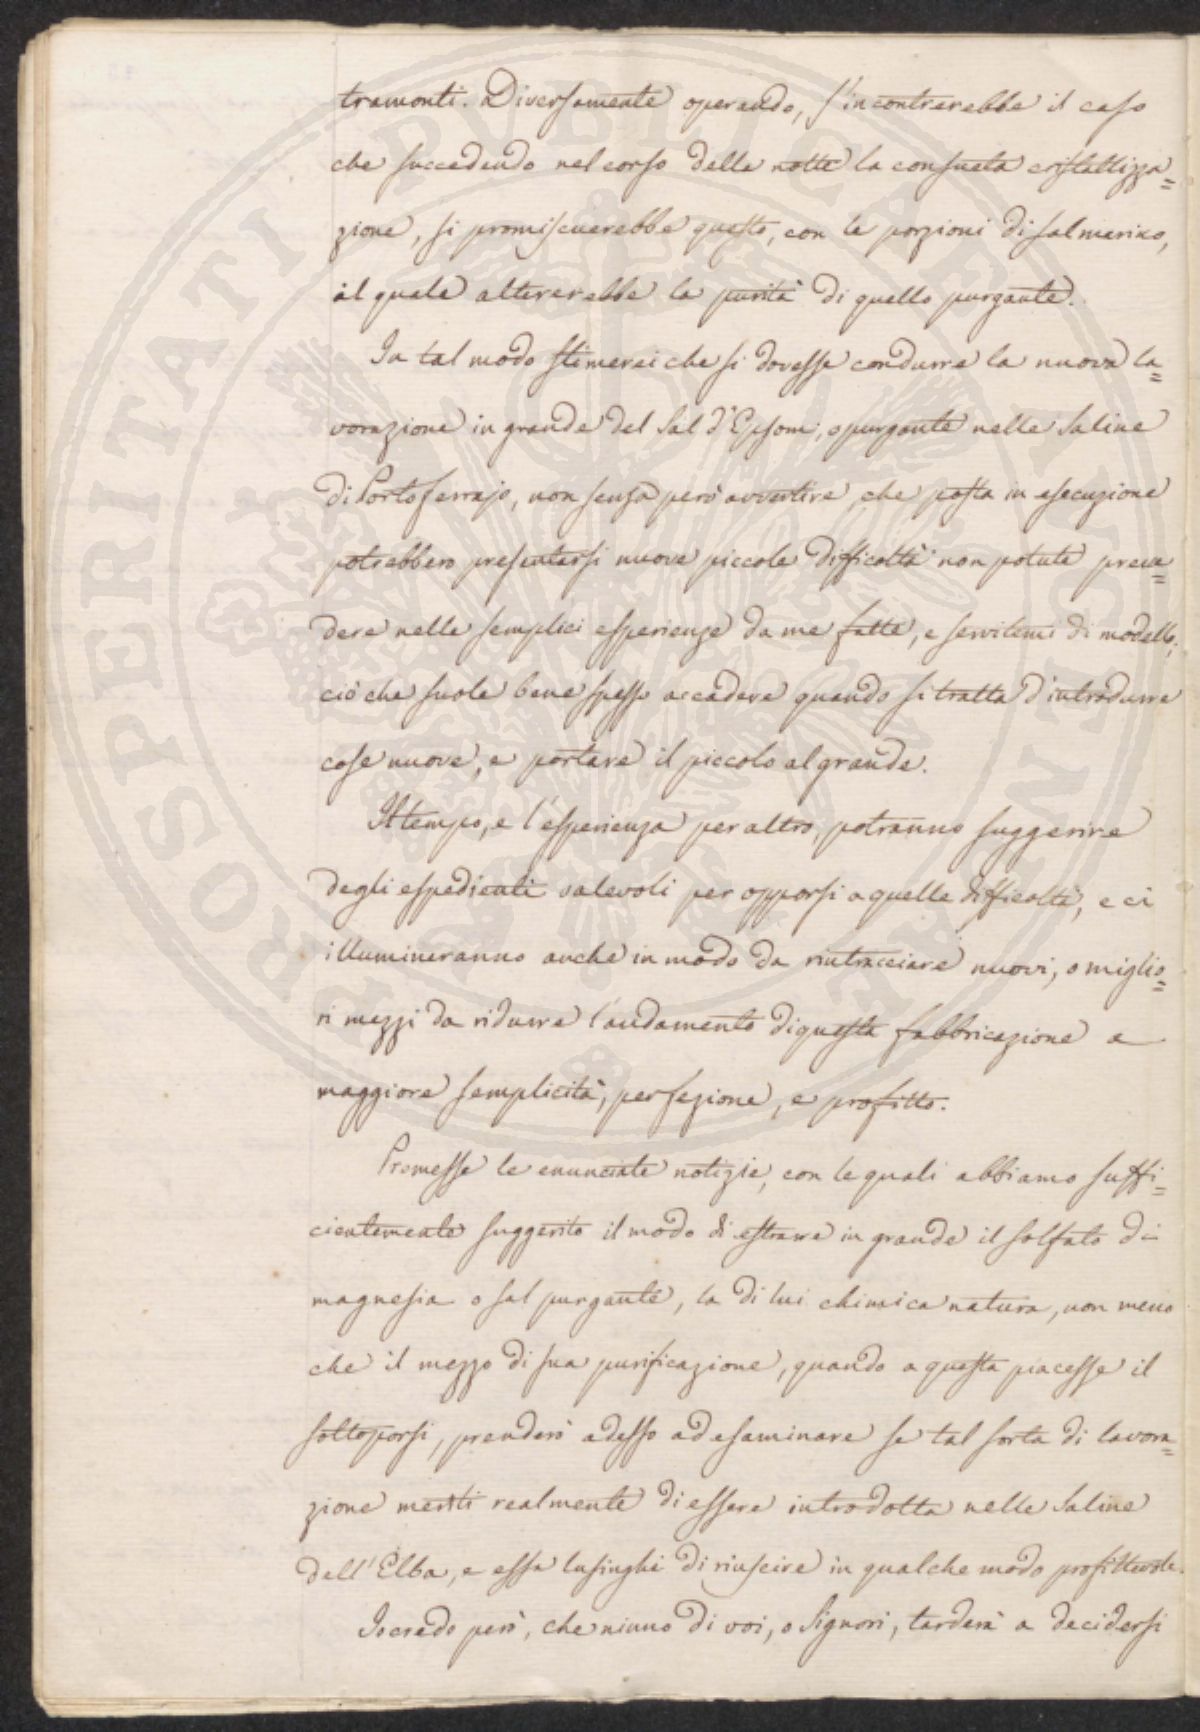 tramonti. Diversamente operando, s'incontrerebbe il caso
che succedendo nel corso della notte la consueta cristallizza=
zione, si promiscuerebbe questo, con le porzioni di sal marino,
il quale altererebbe la purità di quello purgante.
In tal modo stimerei che si dovesse condurre la nuova la=
vorazione in grande del Sal d'Epsom, o purgante nelle Saline
di Portoferrajo, non senza però avvertire, che posta in esecuzione
potrebbero presentarsi nuove piccole difficoltà non potute preve=
dere nelle semplici esperienze da me fatte, e servitemi di modello;
ciò che suole bene spesso accadere quando si tratta d'introdurre
cose nuove, e portare il piccolo al grande.
Il tempo, e l'esperienza per altro, potranno suggerire
degli espedienti valevoli per opporsi a quelle difficoltà, e ci
illumineranno anche in modo da rintracciare nuovi, o miglio=
ri mezzi da ridurre l'andamento di questa fabbricazione a
maggiore semplicità, perfezione, e profitto.
Premesse le enunciate notizie, con le quali abbiamo suffi=
cientemente suggerito il modo di estrarre in grande il solfato di
magnesia o sal purgante, la di lui chimica natura, non meno
che il mezzo di sua purificazione, quando a questa piacesse il
sottoporsi, prenderò adesso ad esaminare se tal sorta di lavora=
zione meriti realmente di essere introdotta nelle Saline
dell'Elba, e essa lusinghi di riuscire in qualche modo profittevole.
Io credo però, che niuno di voi, o Signori, tarderà a decidersi
PROSPERITATI PUBLICAE